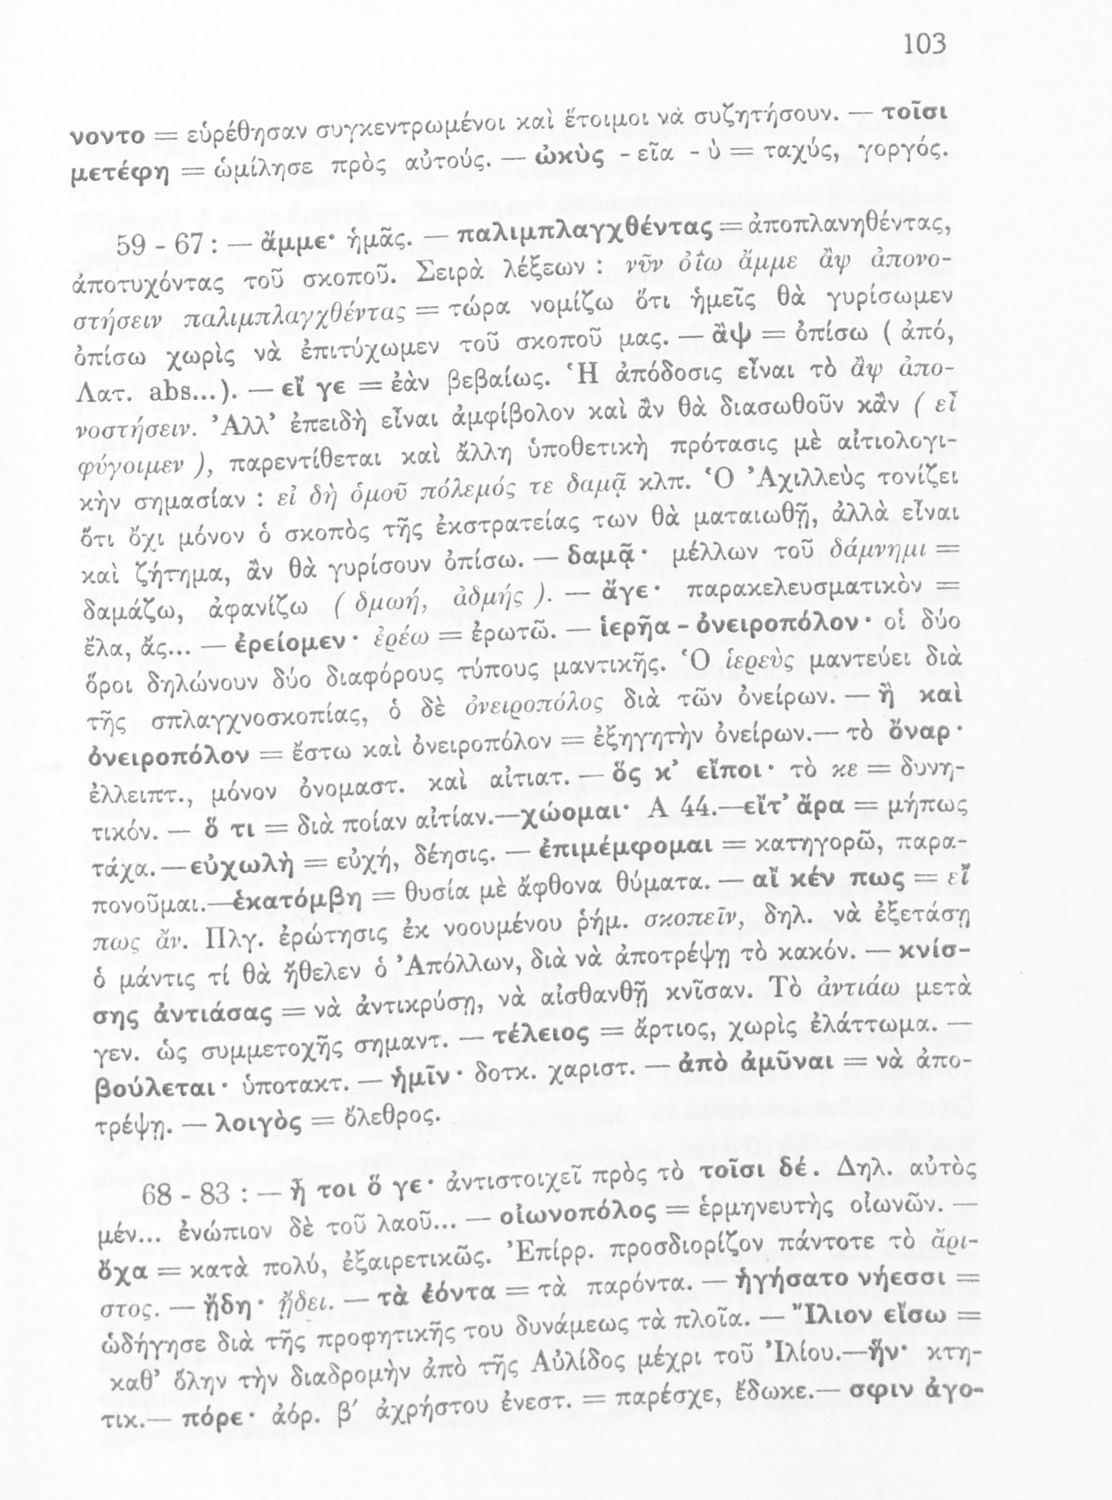 103
νοντο = εὑρέθησαν συγκεντρωμένοι καὶ ἕτοιμοι νὰ συζητήσουν. — τοῖσι
μετέφη = ὡμίλησε πρὸς αὐτούς. — ὠκὺς - εῖα - ὺ = ταχύς, γοργός.
59 - 67 : — ἄμμε· ἡμᾶς. — παλιμπλαγχθέντας = ἀποπλανηθέντας,
ἀποτυχόντας τοῦ σκοποῦ. Σειρὰ λέξεων : νῦν ὀΐω ἄμμε ἂψ ἀπονο-
στήσειν παλιμπλαγχθέντας = τώρα νομίζω ὅτι ἡμεῖς θὰ γυρίσωμεν
ὀπίσω χωρὶς νὰ ἐπιτύχωμεν τοῦ σκοποῦ μας. — ἂψ = ὀπίσω ( ἀπό,
Λατ. abs...). — εἴ γε = ἐὰν βεβαίως. Ἡ ἀπόδοσις εἶναι τὸ ἂψ ἀπο-
νοστήσειν. Ἀλλ' ἐπειδὴ εἶναι ἀμφίβολον καὶ ἂν θὰ διασωθοῦν κἂν ( εἴ
φύγοιμεν ), παρεντίθεται καὶ ἄλλη ὑποθετικὴ πρότασις μὲ αἰτιολογι-
κὴν σημασίαν : εἰ δὴ ὁμοῦ πόλεμός τε δαμᾷ κλπ. Ὁ Ἀχιλλεὺς τονίζει
ὅτι ὄχι μόνον ὁ σκοπὸς τῆς ἐκστρατείας των θὰ ματαιωθῇ, ἀλλὰ εἶναι
καὶ ζήτημα, ἂν θὰ γυρίσουν ὀπίσω. — δαμᾷ· μέλλων τοῦ δάμνημι =
δαμάζω, ἀφανίζω ( δμωή, ἀδμής ). — ἄγε· παρακελευσματικὸν =
ἔλα, ἄς... — ἐρείομεν· ἐρέω = ἐρωτῶ. — ἱερῆα - ὀνειροπόλον· οἱ δύο
ὅροι δηλώνουν δύο διαφόρους τύπους μαντικῆς. Ὁ ἱερεὺς μαντεύει διὰ
τῆς σπλαγχνοσκοπίας, ὁ δὲ ὀνειροπόλος διὰ τῶν ὀνείρων. — ἢ καὶ
ὀνειροπόλον = ἔστω καὶ ὀνειροπόλον = ἐξηγητὴν ὀνείρων.— τὸ ὄναρ·
ἐλλειπτ., μόνον ὀνομαστ. καὶ αἰτιατ. — ὅς κ' εἴποι· τὸ κε = δυνη-
τικόν. — ὅ τι = διὰ ποίαν αἰτίαν.—χώομαι· Α 44.—εἴτ' ἄρα = μήπως
τάχα.—εὐχωλὴ = εὐχή, δέησις. — ἐπιμέμφομαι = κατηγορῶ, παρα-
πονοῦμαι.—ἑκατόμβη = θυσία μὲ ἄφθονα θύματα. — αἴ κέν πως = εἴ
πως ἄν. Πλγ. ἐρώτησις ἐκ νοουμένου ῥήμ. σκοπεῖν, δηλ. νὰ ἐξετάσῃ
ὁ μάντις τί θὰ ἤθελεν ὁ Ἀπόλλων, διὰ νὰ ἀποτρέψῃ τὸ κακόν. — κνίσ-
σης ἀντιάσας = νὰ ἀντικρύσῃ, νὰ αἰσθανθῇ κνῖσαν. Τὸ ἀντιάω μετὰ
γεν. ὡς συμμετοχῆς σημαντ. — τέλειος = ἄρτιος, χωρὶς ἐλάττωμα. —
βούλεται· ὑποτακτ. — ἡμῖν· δοτκ. χαριστ. — ἀπὸ ἀμῦναι = νὰ ἀπο-
τρέψῃ. — λοιγὸς = ὄλεθρος.
68 - 83 : — ἦ τοι ὅ γε· ἀντιστοιχεῖ πρὸς τὸ τοῖσι δέ. Δηλ. αὐτὸς
μέν... ἐνώπιον δὲ τοῦ λαοῦ... — οἰωνοπόλος = ἑρμηνευτὴς οἰωνῶν. —
ὄχα = κατὰ πολύ, ἐξαιρετικῶς. Ἐπίρρ. προσδιορίζον πάντοτε τὸ ἄρι-
στος. — ᾔδη· ᾔδει. — τὰ ἐόντα = τὰ παρόντα. — ἡγήσατο νήεσσι =
ὡδήγησε διὰ τῆς προφητικῆς του δυνάμεως τὰ πλοῖα. — Ἴλιον εἴσω =
καθ' ὅλην τὴν διαδρομὴν ἀπὸ τῆς Αὐλίδος μέχρι τοῦ Ἰλίου.—ἥν· κτη-
τικ.— πόρε· ἀόρ. β' ἀχρήστου ἐνεστ. = παρέσχε, ἔδωκε.— σφιν ἀγο-